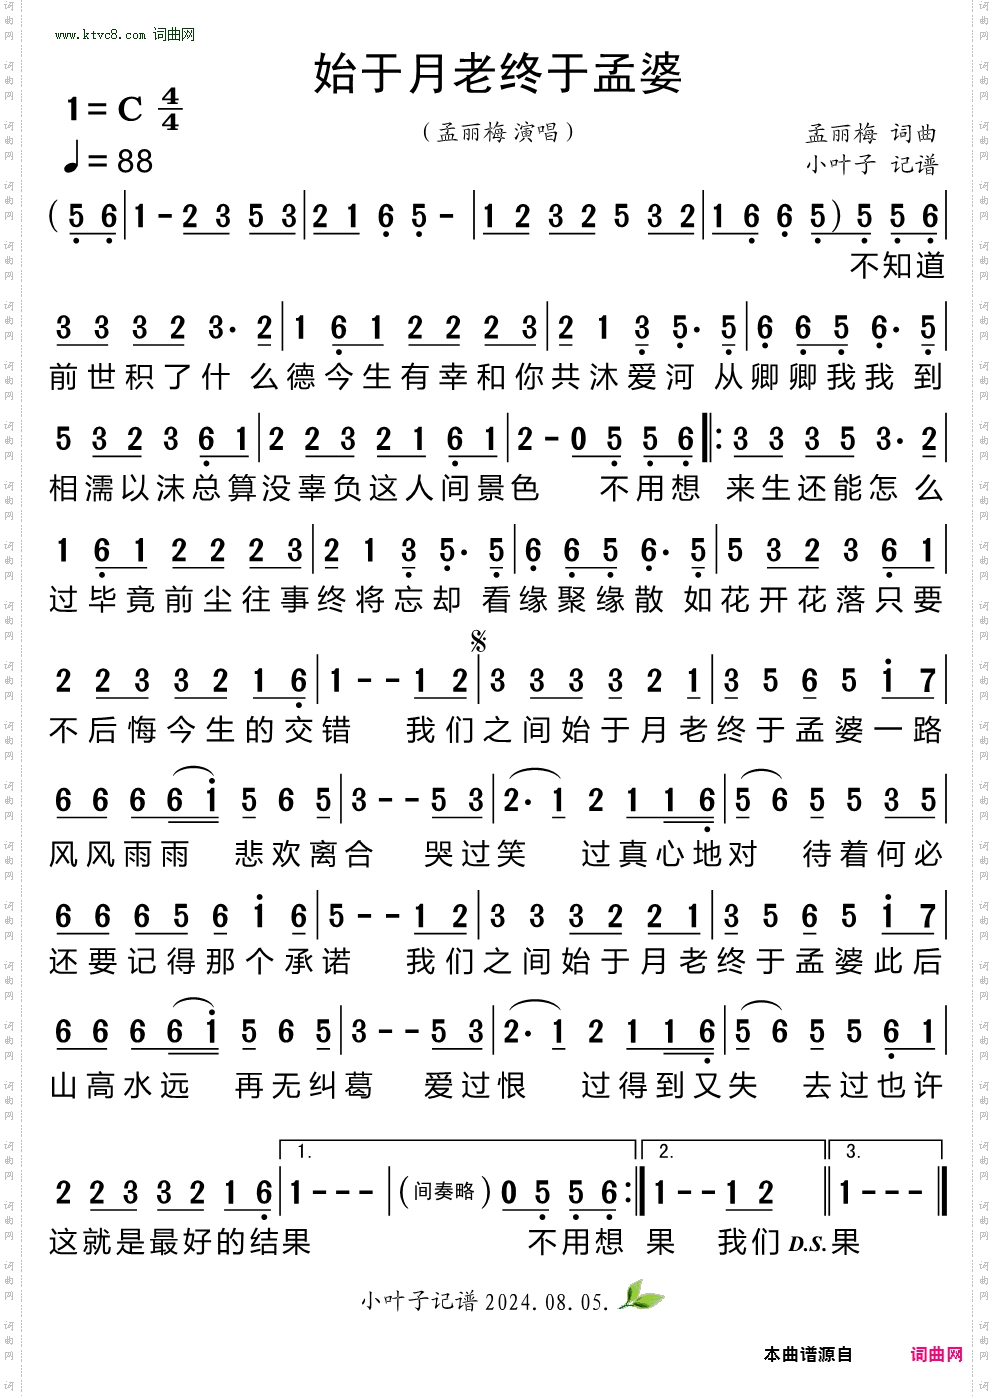 www.ktvc8.com 词曲网
始于月老终于孟婆
1=C 4/4
（孟丽梅 演唱）
孟丽梅 词曲
♩=88
小叶子 记谱
(5 6|1 - 2 3 5 3|2 1 6 5 -|1 2 3 2 5 3 2|1 6 6 5) 5 5 6|
不知道
3 3 3 2 3· 2|1 6 1 2 2 2 3|2 1 3 5· 5|6 6 5 6· 5|
前世积了什 么德今生有幸和你共沐爱河 从卿卿我我 到
5 3 2 3 6 1|2 2 3 2 1 6 1|2 - 0 5 5 6‖:3 3 3 5 3· 2|
相濡以沫总算没辜负这人间景色 不用想 来生还能怎么
1 6 1 2 2 2 3|2 1 3 5· 5|6 6 5 6· 5|5 3 2 3 6 1|
过毕竟前尘往事终将忘却 看缘聚缘散 如花开花落只要
𝄋
2 2 3 3 2 1 6|1 - - 1 2|3 3 3 3 2 1|3 5 6 5 1 7|
不后悔今生的交错 我们之间始于月老终于孟婆一路
6 6 6 6 1 5 6 5|3 - - 5 3|2· 1 2 1 1 6|5 6 5 5 3 5|
风风雨雨 悲欢离合 哭过笑 过真心地对 待着何必
6 6 6 5 6 1 6|5 - - 1 2|3 3 3 2 2 1|3 5 6 5 1 7|
还要记得那个承诺 我们之间始于月老终于孟婆此后
6 6 6 6 1 5 6 5|3 - - 5 3|2· 1 2 1 1 6|5 6 5 5 6 1|
山高水远 再无纠葛 爱过恨 过得到又失 去过也许
1. 2. 3.
2 2 3 3 2 1 6|1 - - -|(间奏略) 0 5 5 6:‖1 - - 1 2‖1 - - -‖
这就是最好的结果 不用想 果 我们 D.S.果
小叶子记谱 2024.08.05.
本曲谱源自 词曲网
词曲网